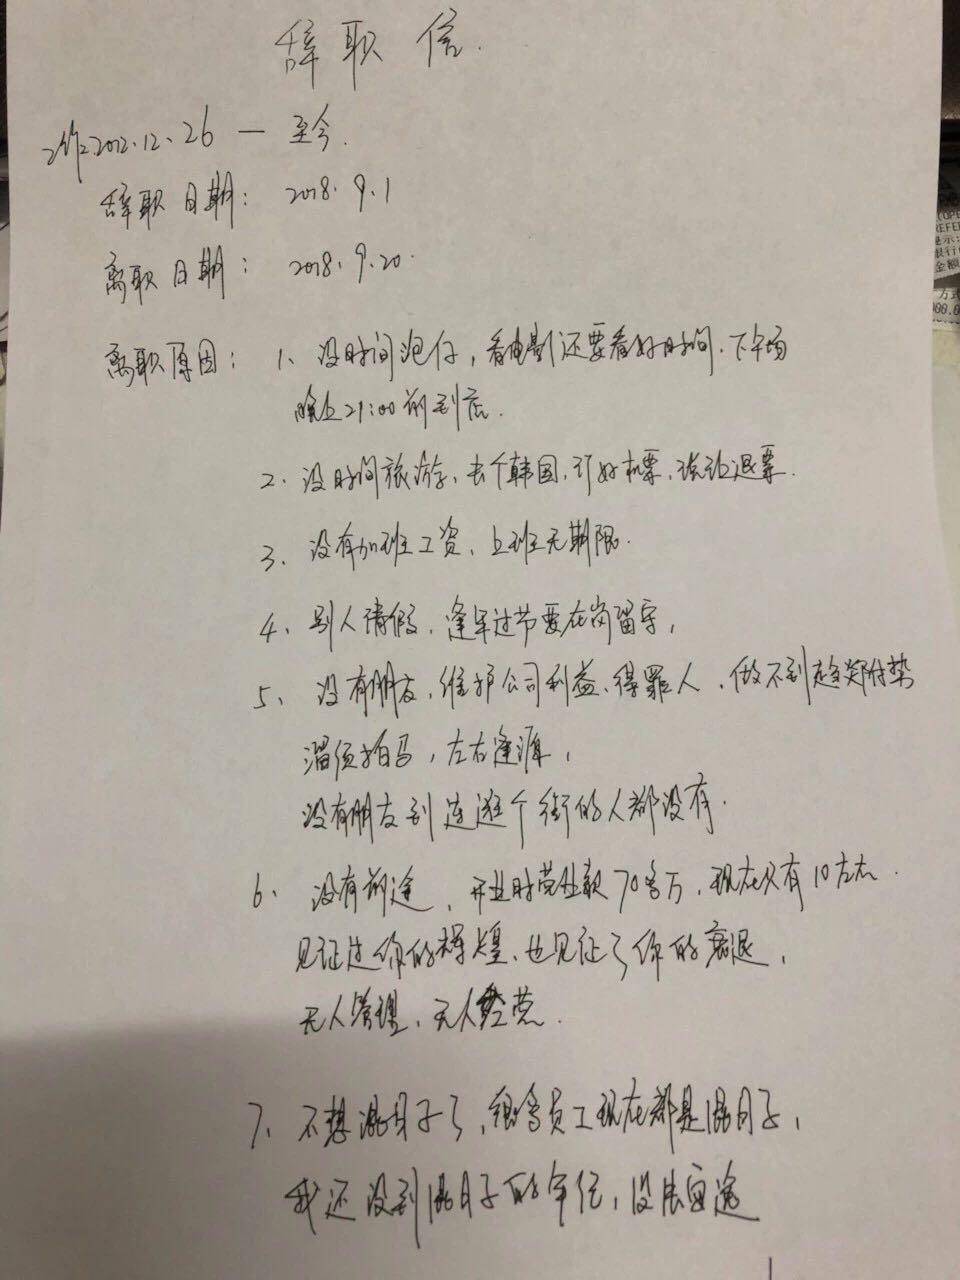 辞职信.
工作2012.12.26 — 至今.
辞职日期: 2018.9.1
离职日期: 2018.9.20.
离职原因: 1、没时间泡仔,看电影还要看好时间.下午场
晚上21:00前到店.
2、没时间旅游、去个韩国,订好机票,说说退票.
3、没有加班工资、上班无期限.
4、别人请假、逢年过节要在岗留守,
5、没有朋友,维护公司利益、得罪人,做不到趋炎附势
溜须拍马,左右逢源,
没有朋友到连逛个街的人都没有.
6、没有前途、开业时营业款70多万,现在只有10左右.
见证过你的辉煌、也见证了你的衰退,
无人管理、无人经营.
7、不想混日子了,很多员工现在都是混日子,
我还没到混日子的年纪,没法